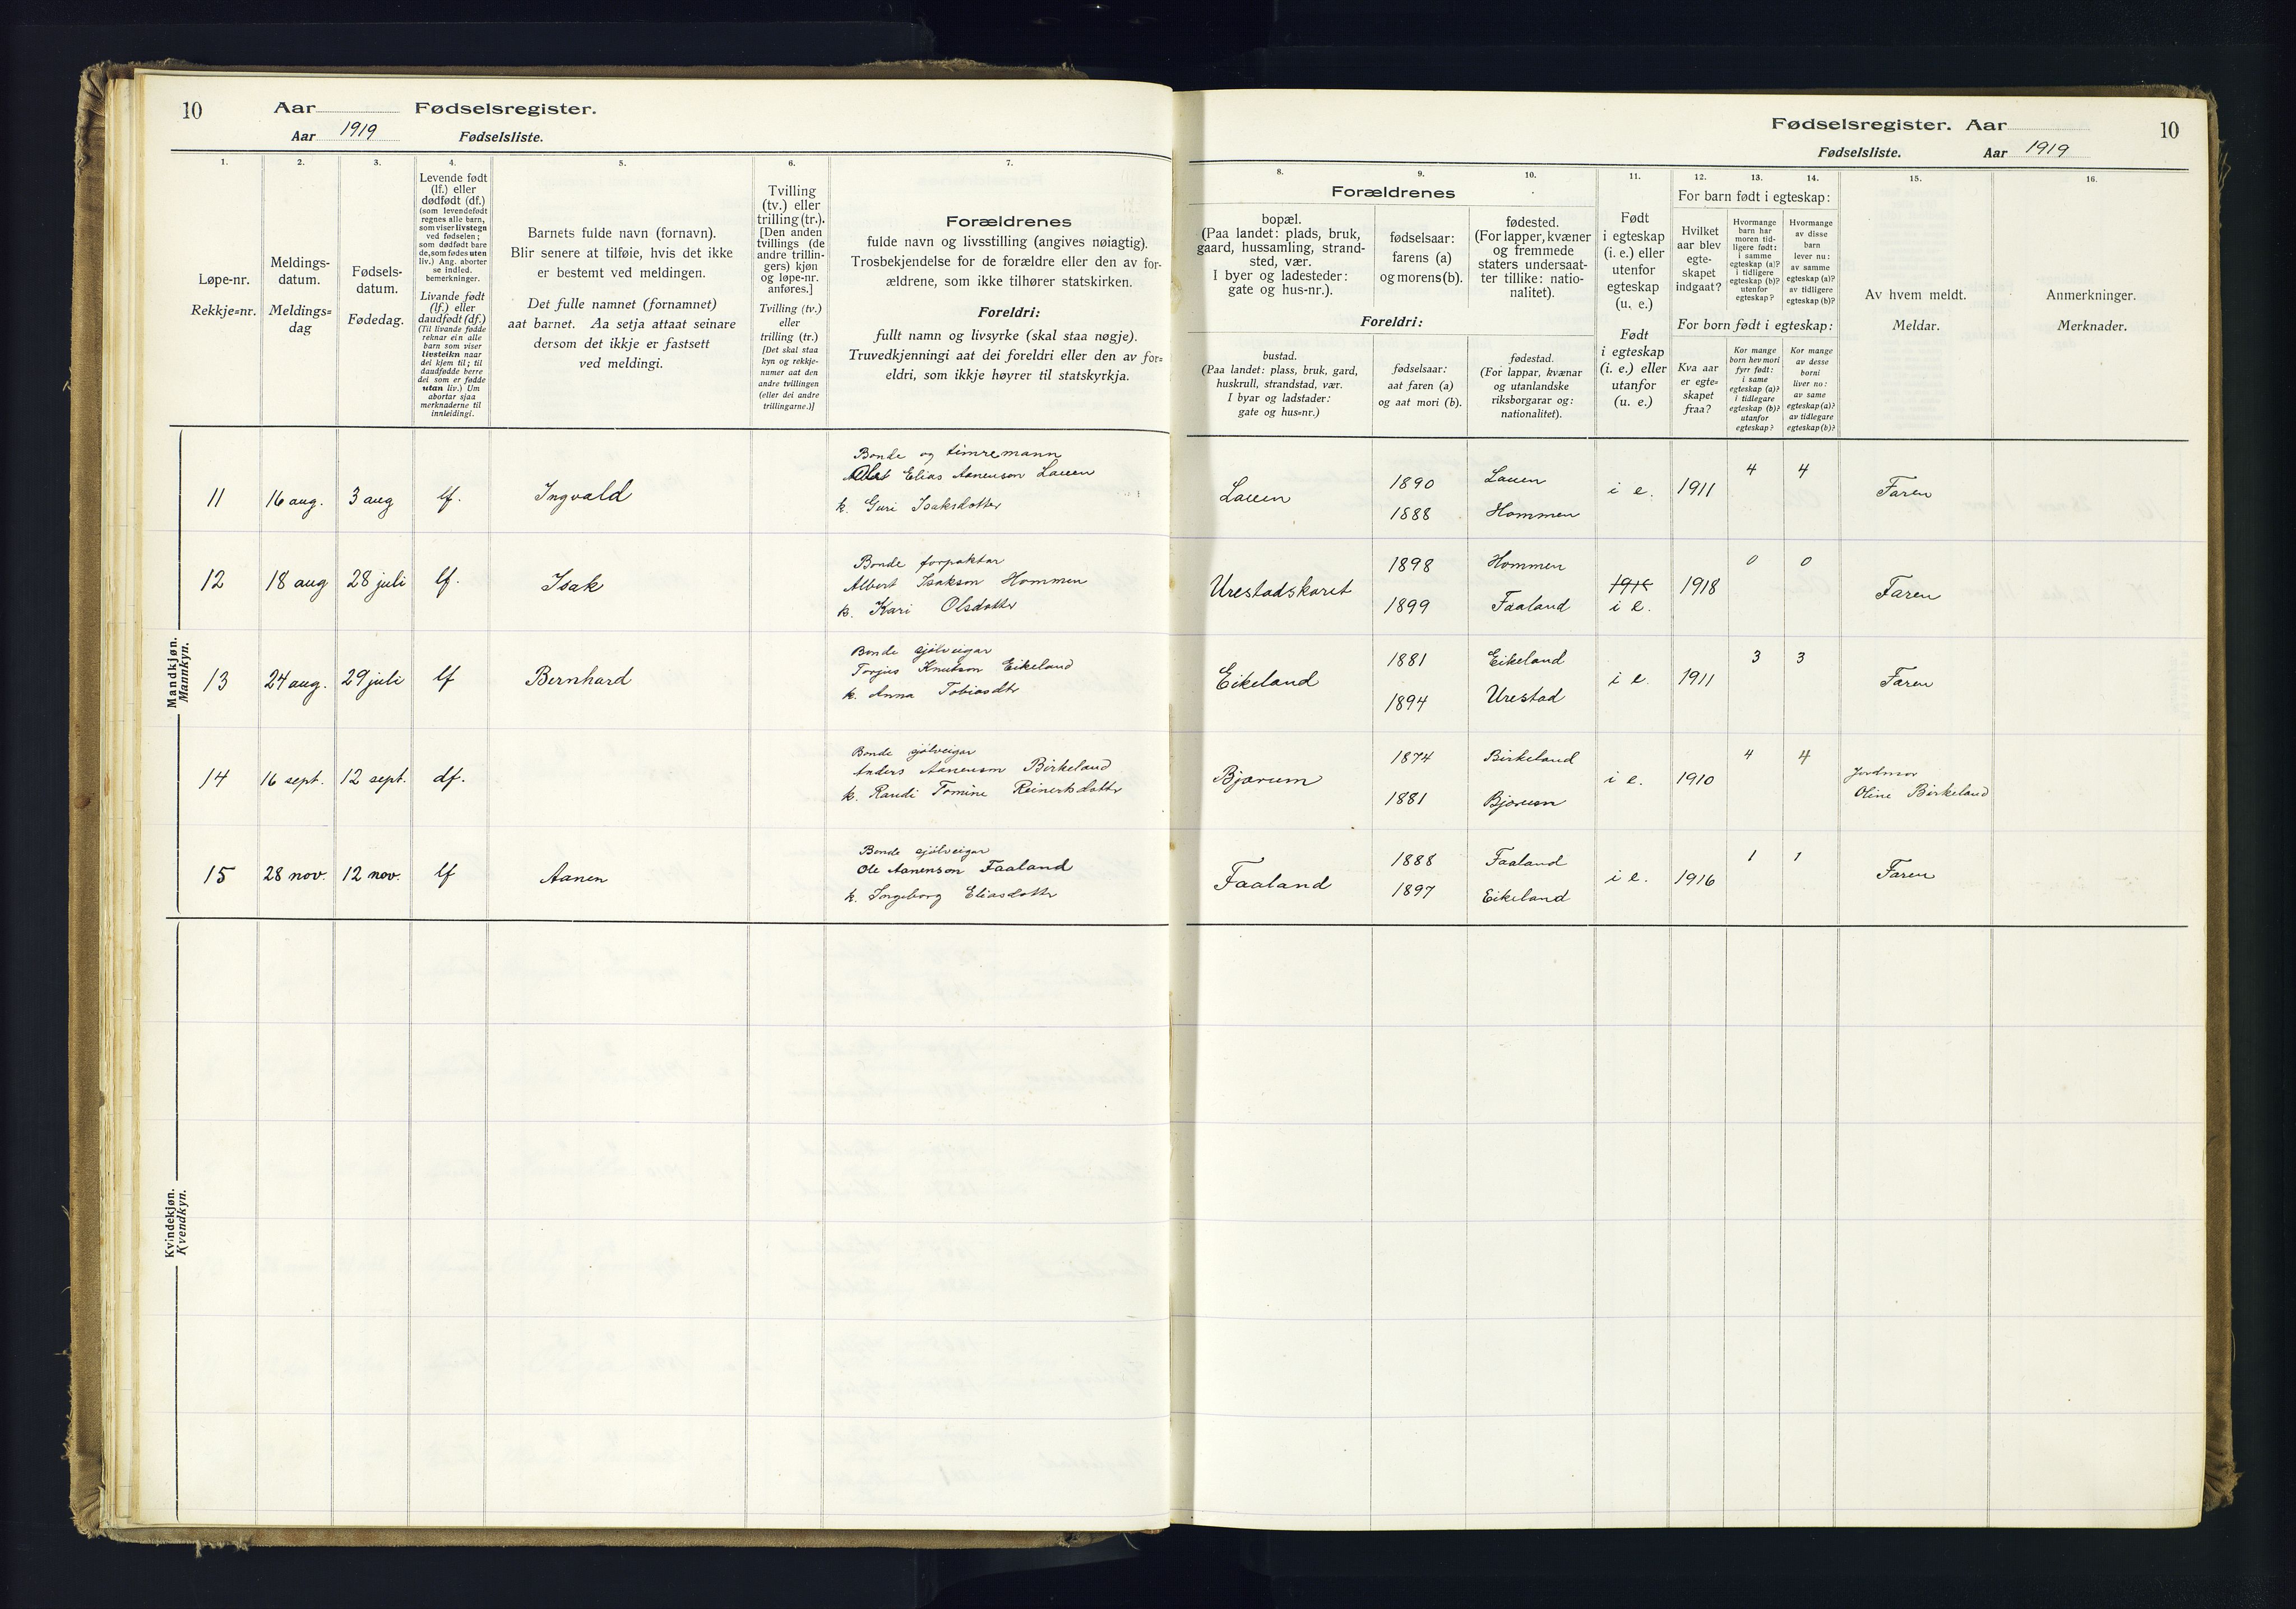 10 Aar Fødselsregister.
Aar 1919 Fødselsliste.
Fødselsregister. Aar 10
Fødselsliste. Aar 1919
1. 2. 3. 4. 5. 6. 7.
Løpe-nr.
Rekkje=nr.
Meldings-
datum.
Meldings=
dag
Fødsels-
datum.
Fødedag.
Levende født
(lf.) eller
dødfødt (df.)
(som levendefødt
regnes alle barn,
som viser livstegn
ved fødselen;
som dødfødt bare
de, som fødes uten
liv.) Ang. aborter
se indled.
bemerkninger.
Livande født
(lf.) eller
daudfødt (df.)
(Til livande fødde
reknar ein alle
barn som viser
livsteikn naar
dei kjem til; til
daudfødde berre
dei som er fødde
utan liv.) Um
abortar sjaa
merknaderne til
innleidingi.
Barnets fulde navn (fornavn).
Blir senere at tilføie, hvis det ikke
er bestemt ved meldingen.
Det fulle namnet (fornamnet)
aat barnet. Aa setja attaat seinare
dersom det ikkje er fastsett
ved meldingi.
Tvilling
(tv.) eller
trilling (tr.).
[Den anden
tvillings (de
andre trillin-
gers) kjøn
og løpe-nr.
anføres.]
Tvilling (tv.)
eller
trilling (tr.)
[Det skal staa
kyn og rekkje-
numer aat den
andre tvillingen
(eller dei andre
trillingarne.)]
Forældrenes
fulde navn og livsstilling (angives nøiagtig).
Trosbekjendelse for de forældre eller den av for-
ældrene, som ikke tilhører statskirken.
Foreldri:
fullt namn og livsyrke (skal staa nøgje).
Truvedkjenningi aat dei foreldri eller den av for=
eldri, som ikkje høyrer til statskyrkja.
8. 9. 10. 11. 12. 13. 14. 15. 16.
Forældrenes
bopæl.
(Paa landet: plads, bruk,
gaard, hussamling, strand-
sted, vær.
I byer og ladesteder:
gate og hus-nr.).
fødselsaar:
farens (a)
og morens (b).
fødested.
(For lapper, kvæner
og fremmede
staters undersaat-
ter tillike: natio-
nalitet).
Foreldri:
bustad.
(Paa landet: plass, bruk, gard,
huskrull, strandstad, vær.
I byar og ladstader:
gate og hus=nr.)
fødselsaar:
aat faren (a)
og aat mori (b).
fødestad.
(For lappar, kvænar
og utanlandske
riksborgarar og:
nationalitet).
Født
i egteskap
(i. e.) eller
utenfor
egteskap
(u. e.)
Født
i egteskap
(i. e.) eller
utanfor
(u. e.)
For barn født i egteskap:
Hvilket
aar blev
egte-
skapet
indgaat?
Hvormange
barn har
moren tid-
ligere født:
i samme
egteskap (a)?
i tidligere
egteskap (b)?
utenfor
egteskap?
Hvormange
av disse
barn
lever nu:
av samme
egteskap (a)?
av tidligere
egteskap (b)?
For born født i egteskap:
Kva aar
er egte=
skapet
fraa?
Kor mange
born hev mori
fyrr født:
i same
egteskap (a)?
i tidlegare
egteskap (b)?
utanfor
egteskap?
Kor mange
av desse
borni
liver no:
av same
egteskap (a)?
av tidlegare
egteskap (b)?
Av hvem meldt.
Meldar.
Anmerkninger.
Merknader.
Mandkjøn.
Mannkyn.
Bonde og timremann
11 16 aug. 3 aug lf. Ingvald Elias Aanenson Lauen
k. Guri Isaksdotter
Lauen 1890 Lauen i e. 1911 4 4 Faren
1888 Hommen
Bonde forpaktar
12 18 aug 28 juli lf. Isak Albert Isakson Hommen
k. Kari Olsdotter
Urestadskaret 1898 Hommen 1918 0 0 Faren
1899 Faaland i e.
Bonde sjølveigar
13 24 aug. 29 juli lf Bernhard Torjus Knutson Eikeland
k. Anna Tobiasdtr
Eikeland 1881 Eikeland i e. 1911 3 3 Faren
1894 Urestad
Bonde sjølveigar
14 16 sept. 12 sept. df. Anders Aanenson Birkeland
k. Randi Tomine Reinertsdotter
Bjørum 1874 Birkeland i e. 1910 4 4 Jordmor
1881 Bjørum Oline Birkeland
Bonde sjølveigar
15 28 nov. 12 nov. lf Aanen Ole Aanenson Faaland
k. Ingeborg Eliasdotter
Faaland 1888 Faaland i e. 1916 1 1 Faren
1897 Eikeland
Kvindekjøn.
Kvendkyn.